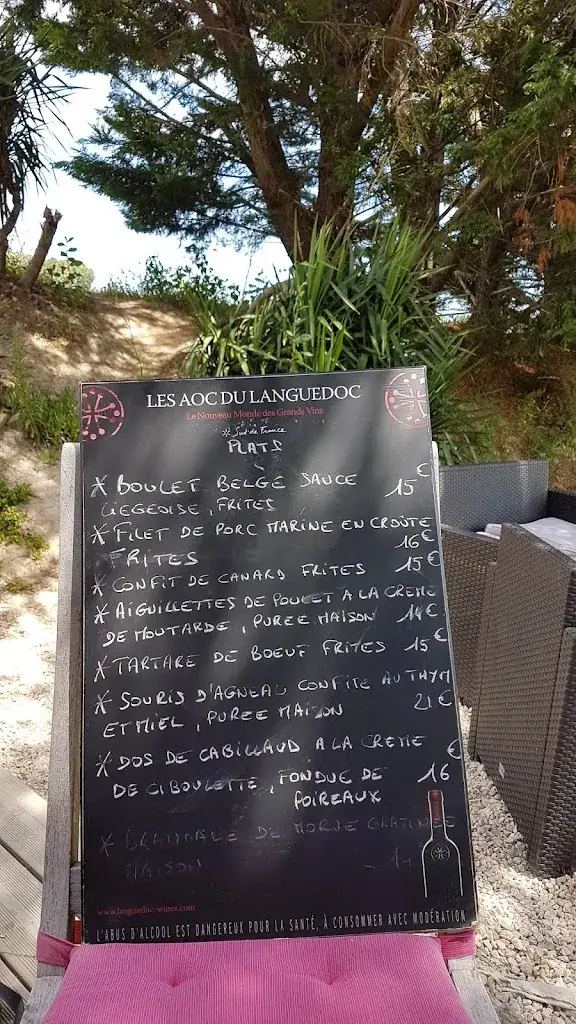 LES AOC DU LANGUEDOC
Le Nouveau Monde des Grands Vins
Sud de France
PLATS
* BOULET BELGE SAUCE 15€
LIEGEOISE, FRITES
* FILET DE PORC MARINE EN CROÛTE
FRITES 16€
* CONFIT DE CANARD FRITES 15€
* AIGUILLETTES DE POULET A LA CREME
DE MOUTARDE, PUREE MAISON 14€
* TARTARE DE BOEUF FRITES 15€
* SOURIS D'AGNEAU CONFITE AU THYM
ET MIEL, PUREE MAISON 21€
* DOS DE CABILLAUD A LA CREME €
DE CIBOULETTE, FONDUE DE 16
POIREAUX
* DE MORUE GRATINEE
MAISON
www.languedoc-wines.com
L'ABUS D'ALCOOL EST DANGEREUX POUR LA SANTÉ, À CONSOMMER AVEC MODÉRATION